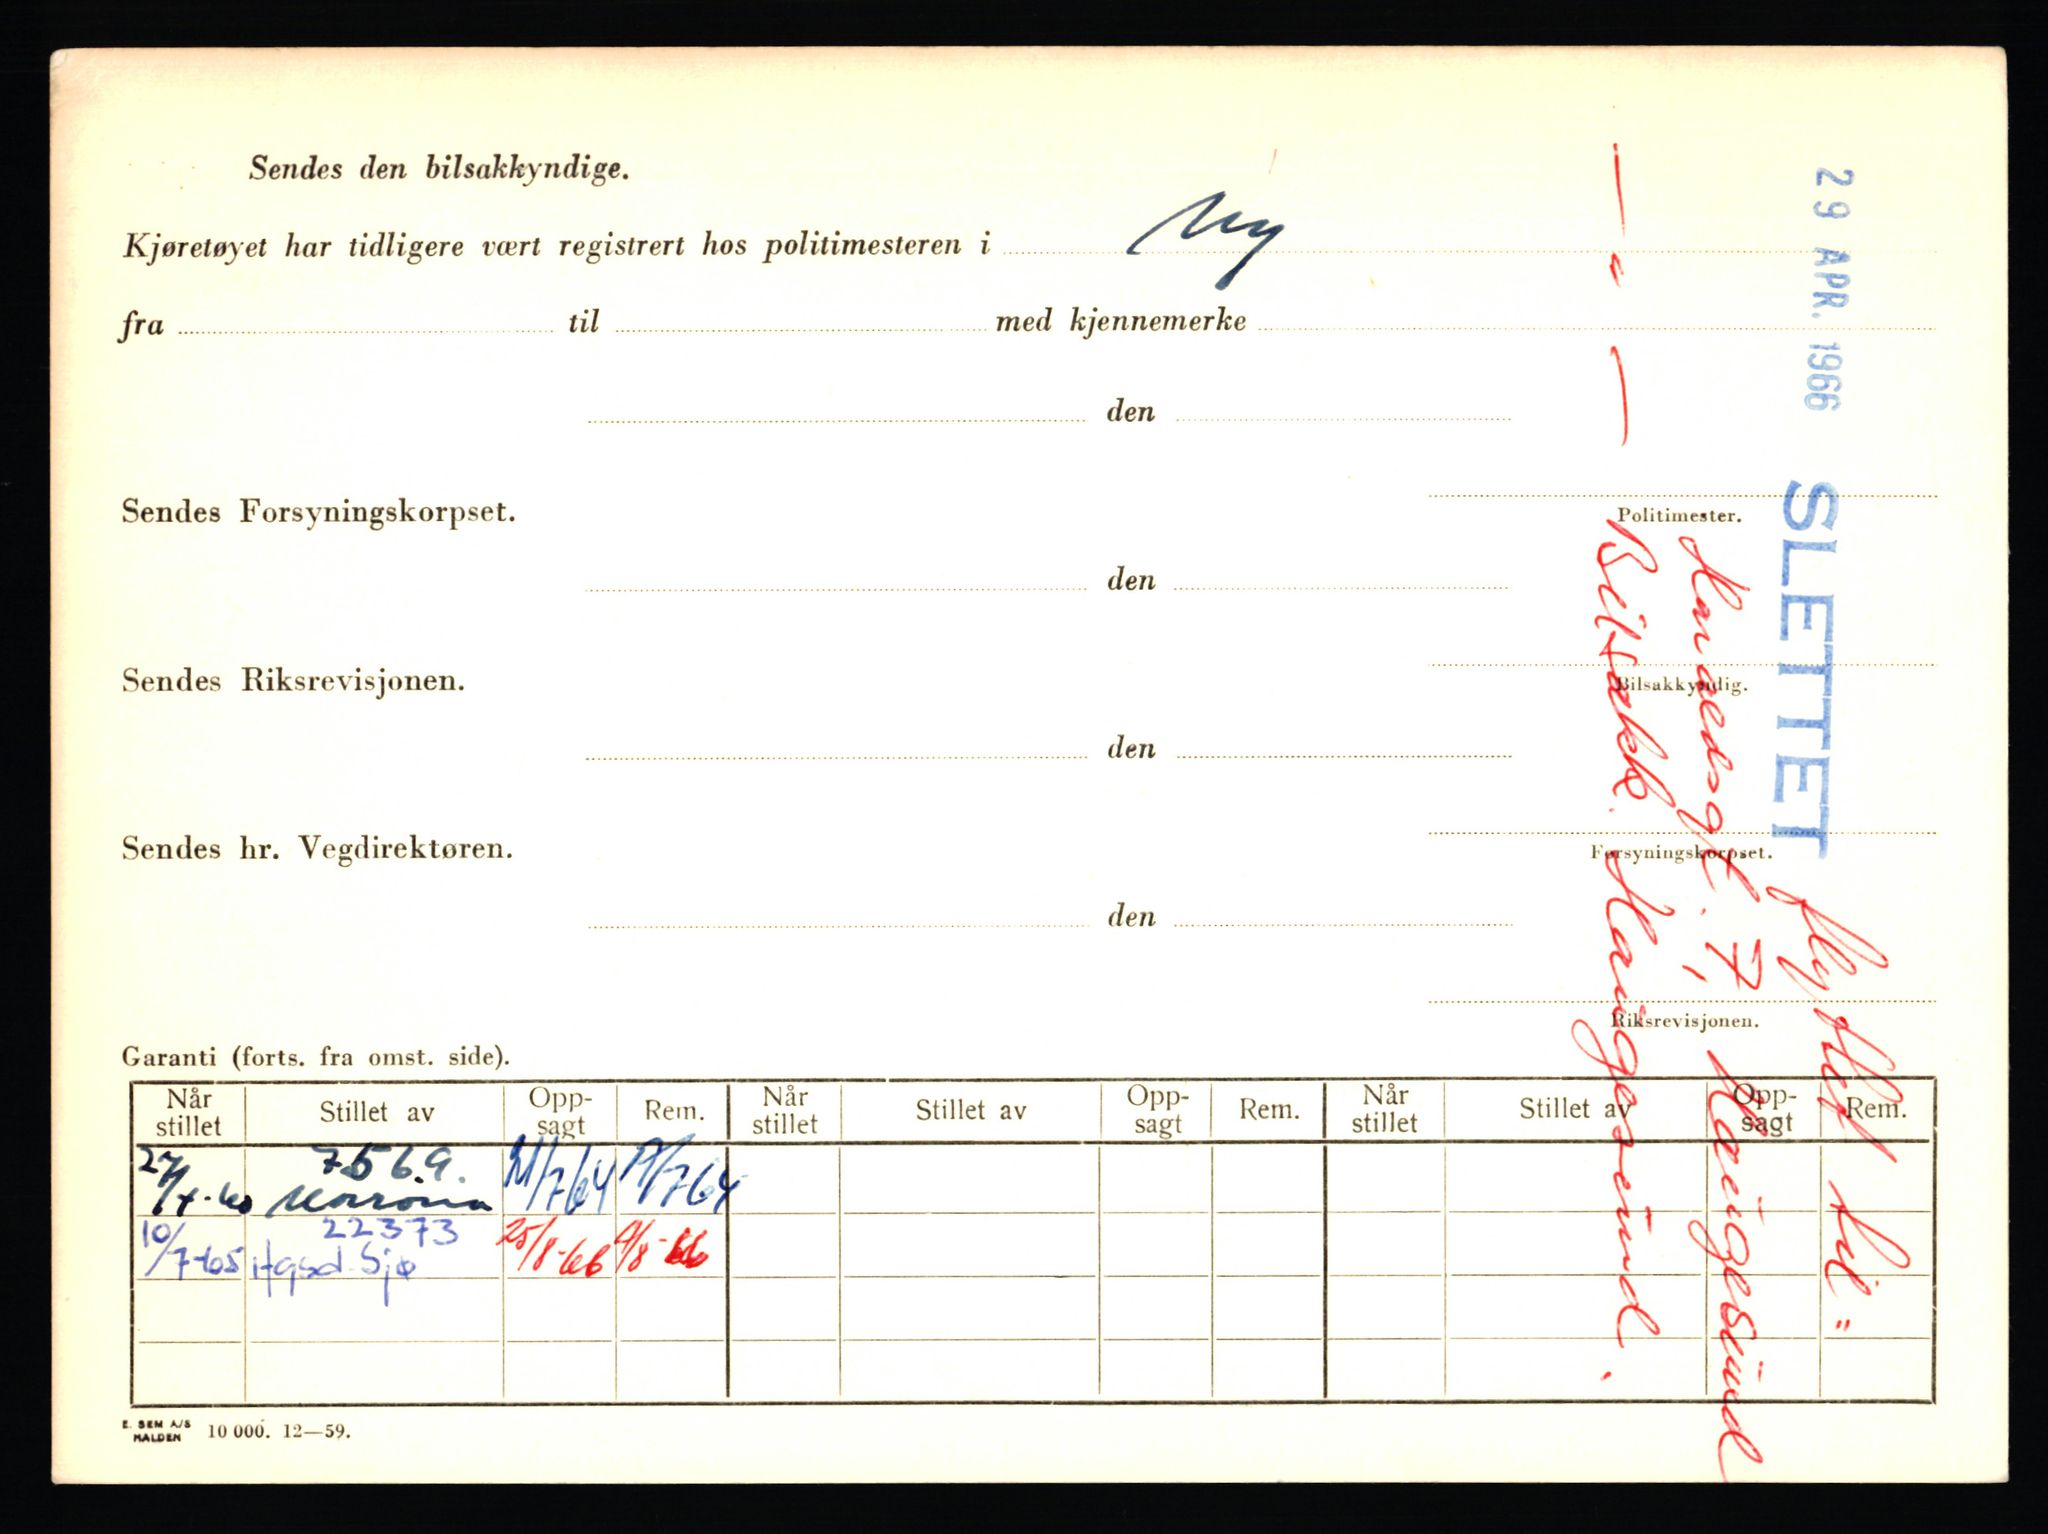 Sendes den bilsakkyndige.
Kjøretøyet har tidligere vært registrert hos politimesteren i Ny
fra til med kjennemerke
den
Politimester.
Sendes Forsyningskorpset.
den
Bilsakkyndig.
Sendes Riksrevisjonen.
den
Forsyningskorpset.
Sendes hr. Vegdirektøren.
den
Riksrevisjonen.
29 APR. 1966 SLETTET
flyttet til"
7, Haugesund
— " — Bilsakk. Haugesund.
Garanti (forts. fra omst. side).
Når stillet Stillet av Opp-sagt Rem. Når stillet Stillet av Opp-sagt Rem. Når stillet Stillet av Opp-sagt Rem.
7569.
22373
10/7-65 Hgsd. Sjø 25/8-66
E. SEM A/S
HALDEN 10 000. 12—59.